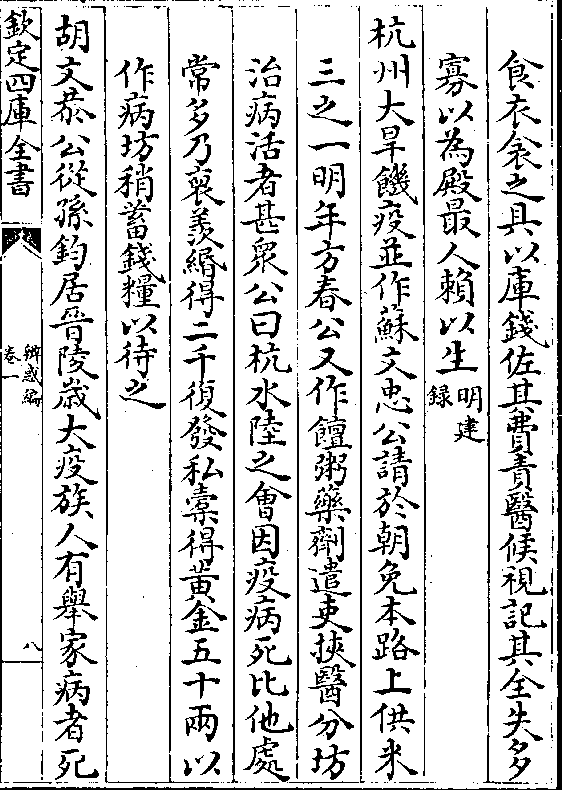 食衣衾之具以庫錢佐其費責醫候視記其全失多
寡以為殿最人賴以生明建錄
杭州大旱饑疫並作蘇文忠公請於朝免本路上供米
三之一明年方春公又作饘粥藥劑遣吏挾醫分坊
治病活者甚衆公曰杭水陸之會因疫病死比他處
常多乃裒羨緡得二千復發私橐得黃金五十兩以
作病坊稍蓄錢糧以待之
胡文恭公從孫鈞居晉陵歳大疫族人有舉家病者死
欽定四庫全書
辨惑編
卷一
八